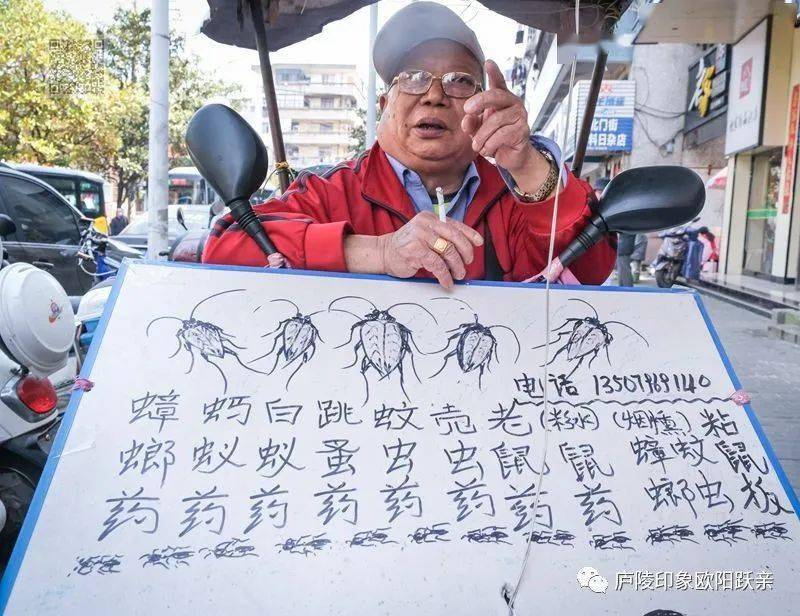 北门街
料日杂店
电话 13507969140
蟑螂药
蚂蚁药
白蚁药
跳蚤药
蚊虫药
壳虫药
老鼠药
(粉水)鼠药
(烟熏)蟑螂 蚊虫
粘鼠板
庐陵印象欧阳跃亲